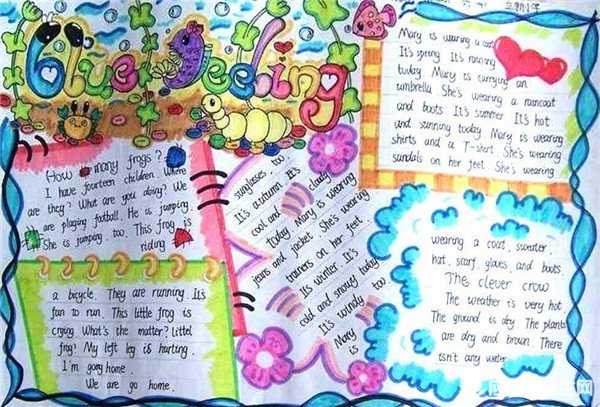 Blue Feeling
How many frogs?
I have fourteen children. Where
are they? What are you doing? We
are playing football. He is jumping.
She is jumping, too. This frog is
riding
a bicycle. They are running. It's
fun to run. This little frog is
crying. What's the matter? Littel
frog? My left leg is hurting.
I'm gong home.
We are go home.
Mary is wearing a coat
It's spring. It's raining
today Mary is carrying an
umbrella She's wearing a raincoat
and boots It's summer It's hot
and sunning today Mary is wearing
shirts and a T-shirt She's wearing
sandals on her feet She's wearing
sunglasses, too.
It's autumn It's
cool and cloudy
today Mary is wearing
jeans and jacket She's wearing
trainers on her feet.
It's winter It's
cold and snowy today
It's windy too
Mary
is
wearing a coat, sweater.
hat, scarf, gloves, and boots.
The clever crow
The weather is very hot
The ground is dry The plants
are dry and brown There
isn't any water